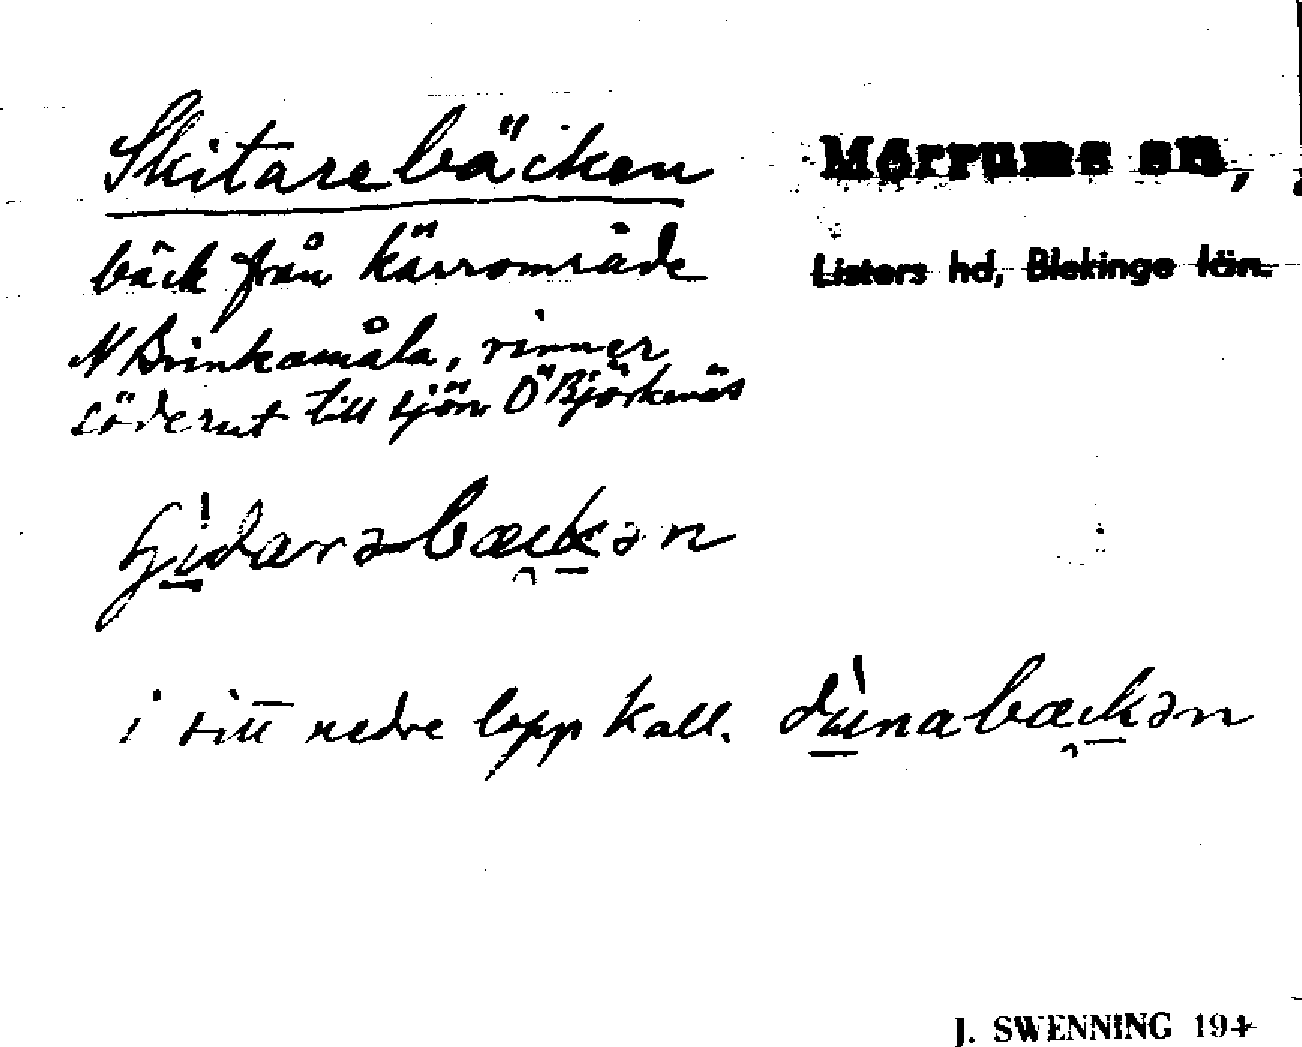 Skitarebäcken
Mörrums sn,
bäck från kärrområde
Listers hd, Blekinge län.
N Brinkamåla, rinner
söderut till sjön Ö Björkenäs
i sitt nedre lopp kall. dúnabækən
J. SWENNING 194